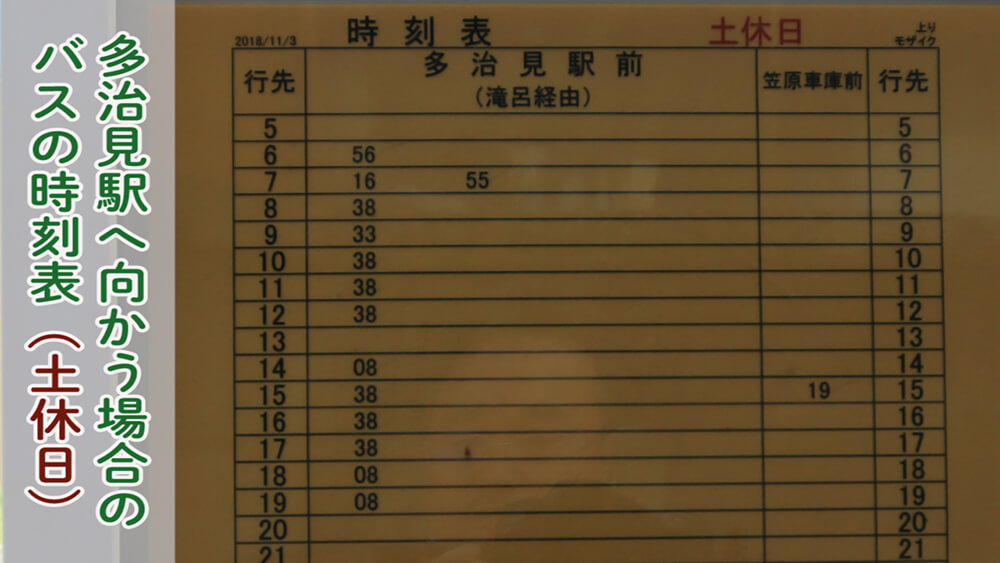 多治見駅へ向かう場合の
バスの時刻表（土休日）
2018/11/3 時刻表 土休日 上り
モザイク
行先 多治見駅前 笠原車庫前 行先
（滝呂経由）
5 5
6 56 6
7 16 55 7
8 38 8
9 33 9
10 38 10
11 38 11
12 38 12
13 13
14 08 14
15 38 19 15
16 38 16
17 38 17
18 08 18
19 08 19
20 20
21 21